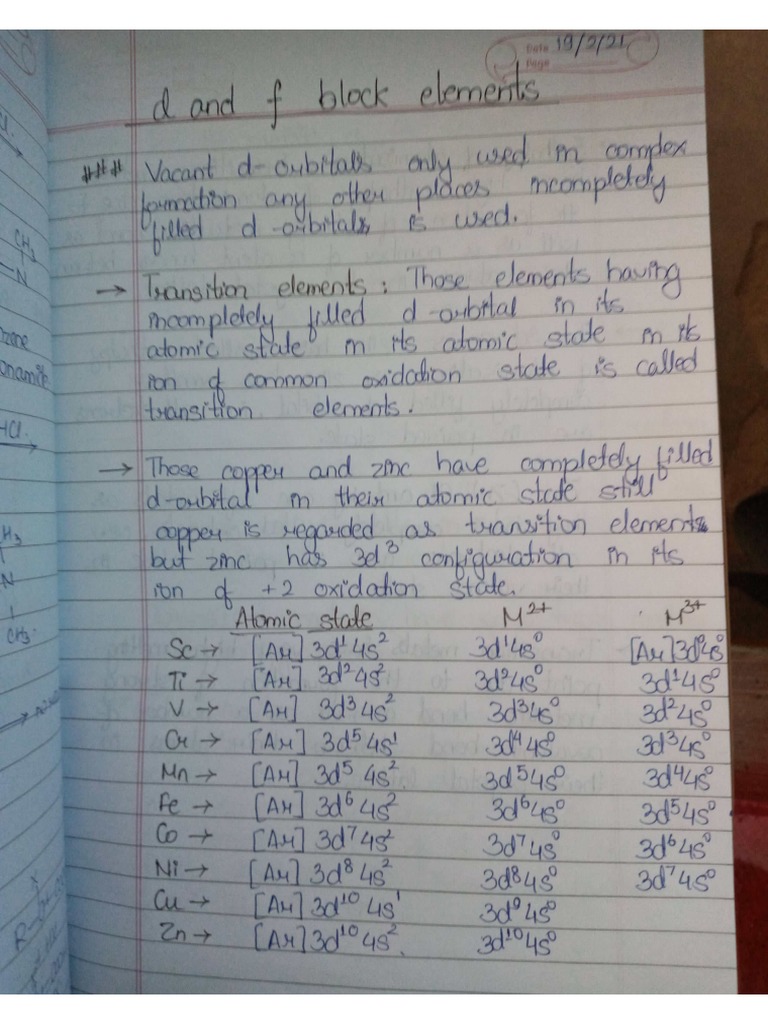 Date 19/2/21
Page
d and f block elements
### Vacant d-orbitals only used in complex
formation any other places incompletely
filled d-orbitals is used.
→ Transition elements : Those elements having
incompletely filled d-orbital in its
atomic state in its atomic state in its
ion of common oxidation state is called
transition elements.
→ Those copper and zinc have completely filled
d-orbital in their atomic state still
copper is regarded as transition elements
but zinc has 3d³ configuration in its
ion of +2 oxidation state.
Atomic state M²⁺ M³⁺
Sc → [Ar] 3d¹4s² 3d¹4s⁰ [Ar]3d⁰4s⁰
Ti → [Ar] 3d²4s² 3d²4s⁰ 3d¹4s⁰
V → [Ar] 3d³4s² 3d³4s⁰ 3d²4s⁰
Cr → [Ar] 3d⁵4s¹ 3d⁴4s⁰ 3d³4s⁰
Mn → [Ar] 3d⁵ 4s² 3d⁵4s⁰ 3d⁴4s⁰
Fe → [Ar] 3d⁶ 4s² 3d⁶4s⁰ 3d⁵4s⁰
Co → [Ar] 3d⁷4s² 3d⁷4s⁰ 3d⁶4s⁰
Ni → [Ar] 3d⁸4s² 3d⁸4s⁰ 3d⁷4s⁰
Cu → [Ar] 3d¹⁰ 4s¹ 3d⁹4s⁰
Zn → [Ar] 3d¹⁰4s². 3d¹⁰4s⁰
CH₃
N
onamite
HCl.
N
CH₃